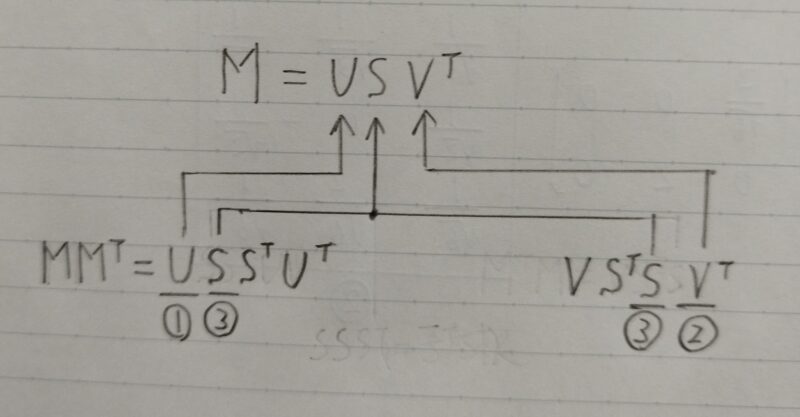 M = U S Vᵀ
MMᵀ = U S Sᵀ Uᵀ V Sᵀ S Vᵀ
① ③ ③ ②